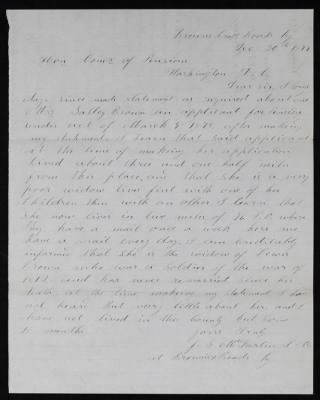 Browns Cross Roads Ky
Dec 20th
Hon Comr of Pensions
Washington D. C.
Dear sir, I some
days since made statement as required about one
Mrs Salley Brown an applicant for Pension
under act of March 9 1878 after making
my statement I learn that said applicant
at the time of making her application
lived about three and one half mile
from this place, and that she is a very
poor widow lives first with one of her
Children then with an other. I learn that
she now lives in two miles of P. O. where
they have a mail once a week here we
have a mail every day. I am creditably
informed that she is the widow of Lewis
Brown who was a soldier of the war of
1812 and has never remarried since his
death, at the time making my statement I had
not heard but very little about her and I
have not lived in the County but some
months
Yours Truly
J. S. P. M.
at Browns X Roads Ky